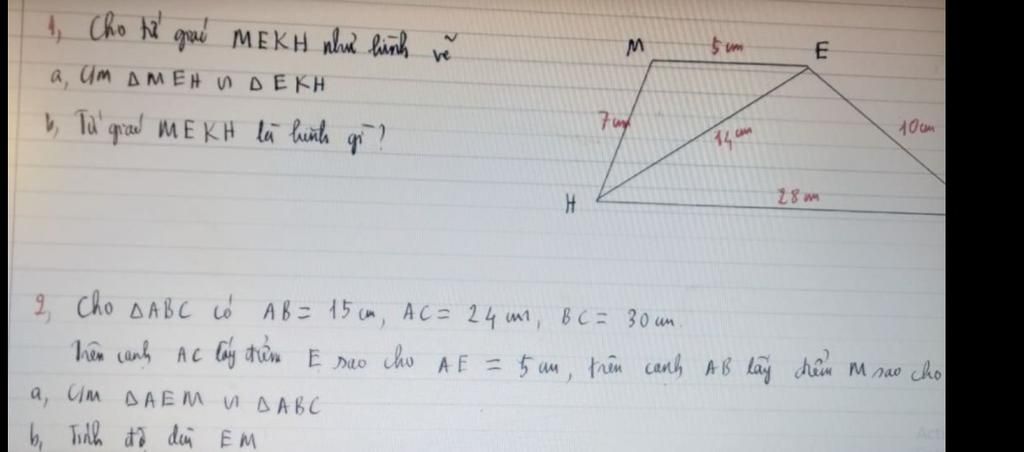 1, Cho tứ giác MEKH như hình vẽ
a, C/m Δ MEH ∽ Δ EKH
b, Tứ giác MEKH là hình gì?
M 5 cm E
7cm 14 cm 10 cm
H 28 cm
2, Cho ΔABC có AB = 15 cm, AC = 24 cm, BC = 30 cm.
Trên cạnh AC lấy điểm E sao cho AE = 5 cm, trên cạnh AB lấy điểm M sao cho
a, C/m ΔAEM ∽ ΔABC
b, Tính độ dài EM